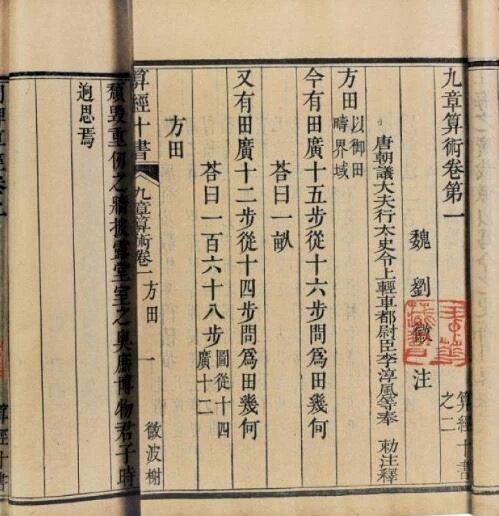 九章算術卷第一
算經十書
之二
魏 劉徽 注
唐朝議大夫行太史令上輕車都尉臣李淳風等奉 勅注釋
方田 以御田
疇界域
今有田廣十五步從十六步問爲田幾何
荅曰一畝
又有田廣十二步從十四步問爲田幾何
荅曰一百六十八步 圖從十四
廣十二
方田
算經十書 九章算術卷一 方田 一 微波榭
頹毁重仞之牆披露堂室之奥庶博物君子時
迥思焉
算經十書